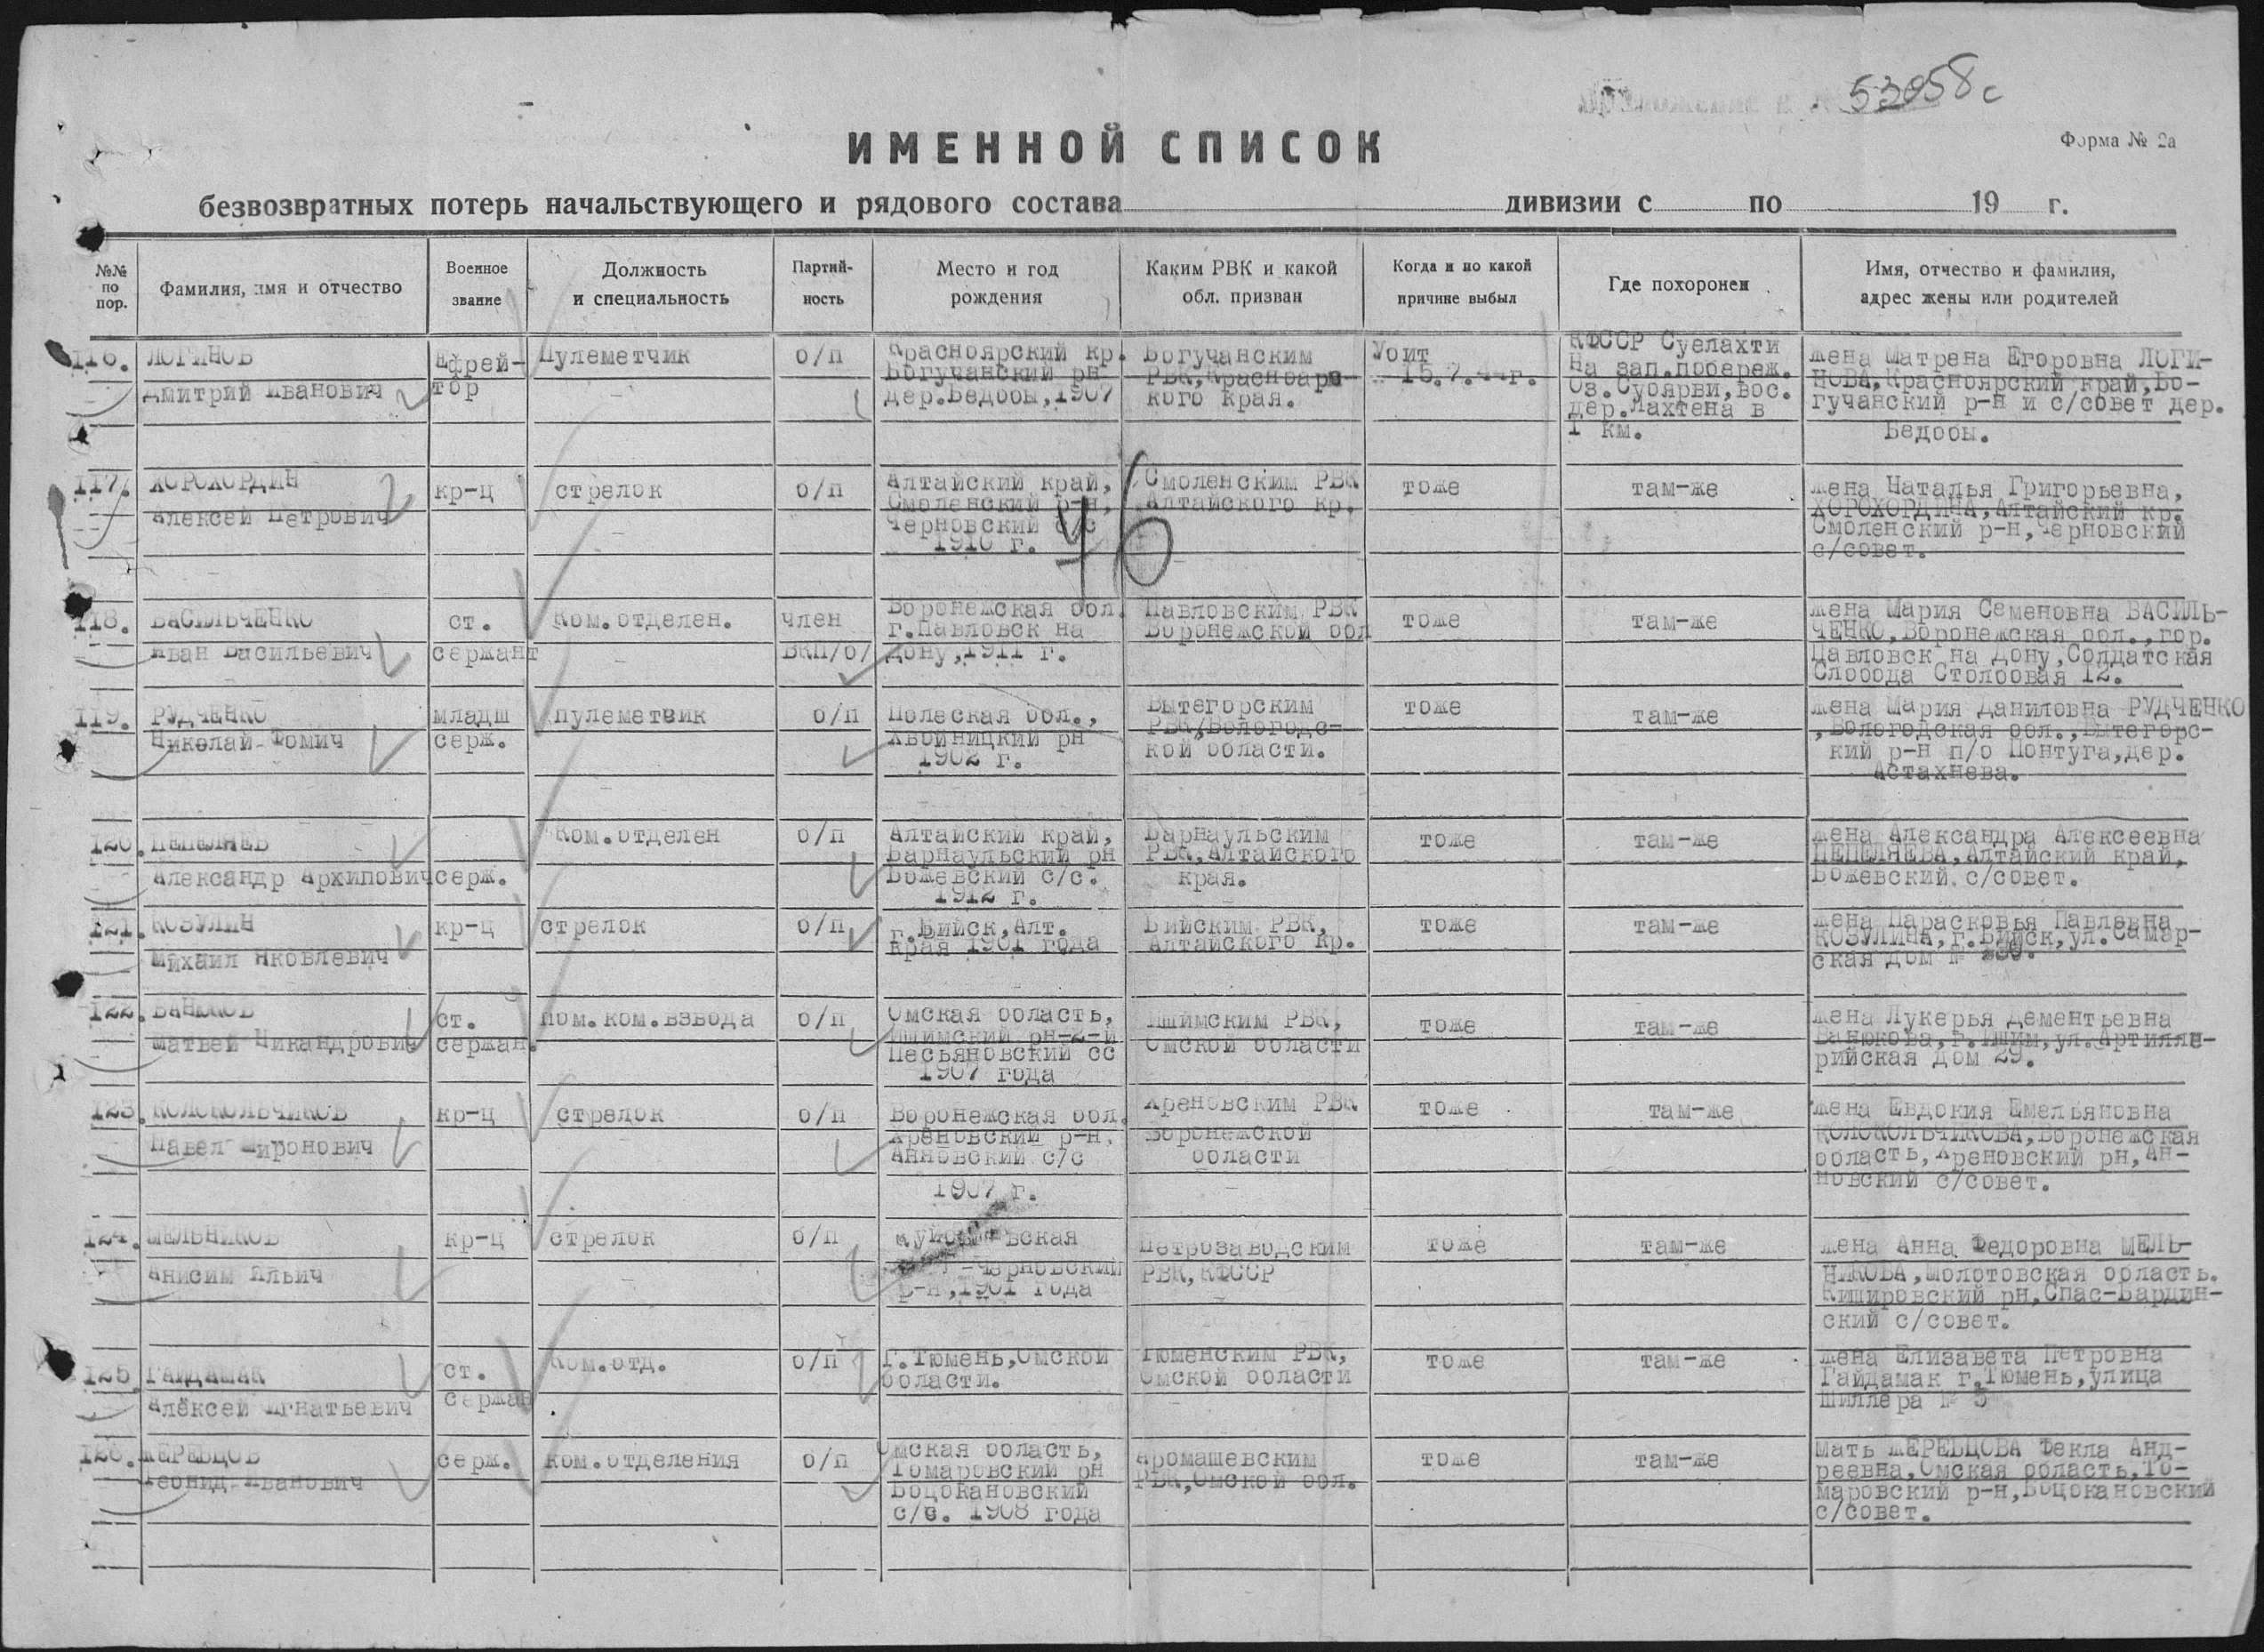 53058с
ИМЕННОЙ СПИСОК
Форма № 2а
безвозвратных потерь начальствующего и рядового состава дивизии с по 19 г.
№№ по пор.
Фамилия, имя и отчество
Военное звание
Должность и специальность
Партий- ность
Место и год рождения
Каким РВК и какой обл. призван
Когда и по какой причине выбыл
Где похоронен
Имя, отчество и фамилия, адрес жены или родителей
116.
ЛОГИНОВ
Дмитрий Иванович
Ефрей-
тор
Пулеметчик
б/п
Красноярский кр.
Богучанский рн
дер.Бедобы,1907
Богучанским
РВК,Красноярс
кого края.
Убит
15.7.44г.
КФССР Суелахти
На зап.побереж.
Оз.Суоярви,вос.
дер.Лахтена в
1 км.
жена Матрена Егоровна ЛОГИ-
НОВА,Красноярский край,Бо-
гучанский р-н и с/совет дер.
Бедобы.
117.
ХОРОХОРДИН
Алексей Петрович
кр-ц
стрелок
б/п
Алтайский край,
Смоленский р-н,
Черновский с/с
1910 г.
Смоленским РВК
Алтайского кр.
тоже
там-же
жена Наталья Григорьевна,
ХОРОХОРДИНА,Алтайский кр.
Смоленский р-н,Черновский
с/совет.
118.
ВАСИЛЬЧЕНКО
Иван Васильевич
ст.
сержант
Ком.отделен.
член
ВКП/б/
Воронежская обл.
г.Павловск на
Дону,1911 г.
Павловским РВК
Воронежской обл
тоже
там-же
жена Мария Семеновна ВАСИЛЬ-
ЧЕНКО,Воронежская обл.,гор.
Павловск на Дону,Солдатская
Слобода Столбовая 12.
119.
РУДЧЕНКО
Николай Фомич
младш
серж.
пулеметвик
б/п
Полеская обл.,
Хвойницкий рн
1902 г.
Вытегорским
РВК,Вологодс-
кой области.
тоже
там-же
жена Мария Даниловна РУДЧЕНКО
,Вологодская обл.,Вытегорс-
кий р-н п/о Понтуга,дер.
Астахнева.
120.
ПЕПЕЛЯЕВ
Александр Архипович
серж.
Ком.отделен
б/п
Алтайский край,
Барнаульский рн
Божевский с/с.
1912 г.
Барнаульским
РВК,Алтайского
края.
тоже
там-же
жена Александра Алексеевна
ПЕПЕЛЯЕВА,Алтайский край,
Божевский с/совет.
121.
КОЗУЛИН
Михаил Яковлевич
кр-ц
стрелок
б/п
г.Бийск,Алт.
края 1901 года
Бийским РВК,
Алтайского кр.
тоже
там-же
жена Парасковья Павлевна
КОЗУЛИНА,г.Бийск,ул.Самар-
ская дом №
122.
ВАНЮКОВ
Матвей Никандрович
ст.
сержан.
пом.ком.взвода
б/п
Омская область,
Ишимский рн-2-й
Песьяновский сс
1907 года
Ишимским РВК,
Омской области
тоже
там-же
жена Лукерья Дементьевна
Ванюкова,г.Ишим,ул.Артилле-
рийская дом 29.
123.
КОЛОКОЛЬЧИКОВ
Павел Миронович
кр-ц
стрелок
б/п
Воронежская обл.
Хреновский р-н,
Анновский с/с
1907 г.
Хреновским РВК
Воронежской
области
тоже
там-же
жена Евдокия Емельяновна
КОЛОКОЛЬЧИКОВА,Воронежская
область,Хреновский рн,Ан-
новский с/совет.
124.
МЕЛЬНИКОВ
Анисим Ильич
кр-ц
стрелок
б/п
-Черновский
р-н,1901 года
Петрозаводским
РВК,КФССР
тоже
там-же
жена Анна Федоровна МЕЛЬ-
НИКОВА,Молотовская область.
Кишировский рн,Спас-Бардин-
ский с/совет.
125.
ГАЙДАМАК
Алексей Игнатьевич
ст.
сержан
Ком.отд.
б/п
г.Тюмень,Омской
области.
Тюменским РВК,
Омской области
тоже
там-же
жена Елизавета Петровна
Гайдамак г.Тюмень,улица
Шиллера № 5
126.
ЖЕРЕБЦОВ
Леонид Иванович
серж.
ком.отделения
б/п
Омская область,
Томаровский рн
Боцокановский
с/с. 1908 года
Аромашевским
РВК,Омской обл.
тоже
там-же
Мать ЖЕРЕБЦОВА Фекла Анд-
реевна,Омская область,То-
маровский р-н,Боцокановский
с/совет.
46